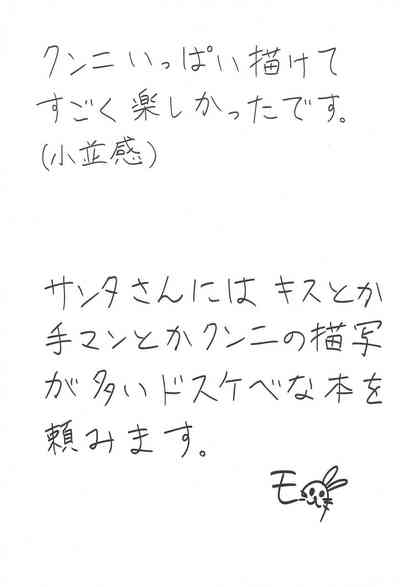 クンニいっぱい描けて
すごく楽しかったです。
(小並感)
サンタさんには キスとか
手マンとかクンニの描写
が多いドスケベな本を
頼みます。
モ